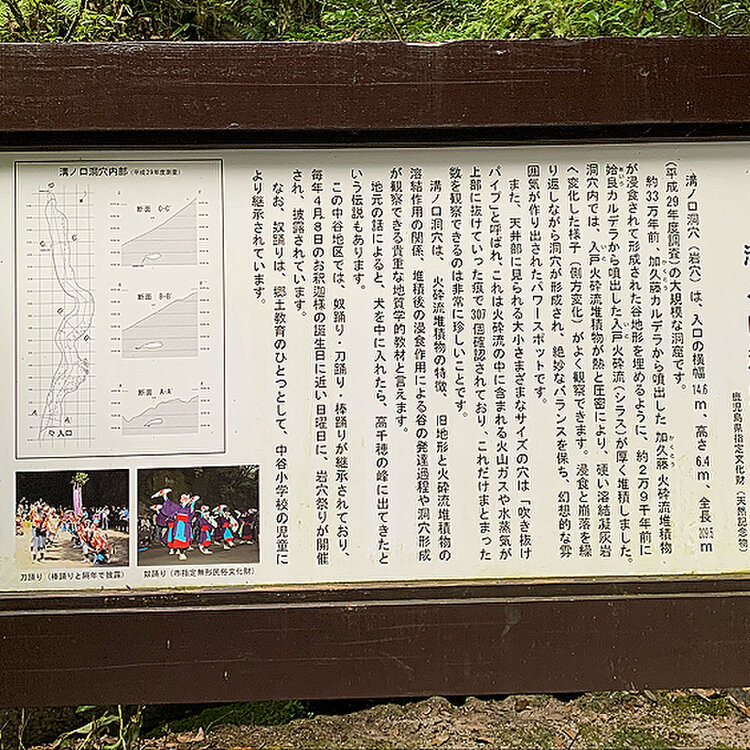 鹿児島県指定文化財（天然記念物）
溝ノ口洞穴（岩穴）は、入口の横幅14.6m、高さ6.4m、全長209.5m
（平成29年度調査）の大規模な洞窟です。
約33万年前、加久藤カルデラから噴出した 加久藤 火砕流堆積物
が浸食されて形成された谷地形を埋めるように、約2万9千年前に
姶良カルデラから噴出した入戸火砕流（シラス）が厚く堆積しました。
洞穴内では、入戸火砕流堆積物が熱と圧密により、硬い溶結凝灰岩
へ変化した様子（側方変化）がよく観察できます。浸食と崩落を繰
り返しながら洞穴が形成され、絶妙なバランスを保ち、幻想的な雰
囲気が作り出されたパワースポットです。
また、天井部に見られる大小さまざまなサイズの穴は「吹き抜け
パイプ」と呼ばれ、これは火砕流の中に含まれる火山ガスや水蒸気が
上部に抜けていった痕で307個確認されており、これだけまとまった
数を観察できるのは非常に珍しいことです。
溝ノ口洞穴は、火砕流堆積物の特徴、旧地形と火砕流堆積物の
溶結作用の関係、堆積後の浸食作用による谷の発達過程や洞穴形成
が観察できる貴重な地質学的教材と言えます。
地元の話によると、犬を中に入れたら、高千穂の峰に出てきたと
いう伝説もあります。
この中谷地区では、奴踊り・刀踊り・棒踊りが継承されており、
毎年4月8日のお釈迦様の誕生日に近い日曜日に、岩穴祭りが開催
され、披露されています。
なお、奴踊りは、郷土教育のひとつとして、中谷小学校の児童に
より継承されています。
溝ノ口洞穴内部（平成29年度測量）
断面 C-C'
断面 B-B'
断面 A-A'
入口
刀踊り（棒踊りと隔年で披露）
奴踊り（市指定無形民俗文化財）